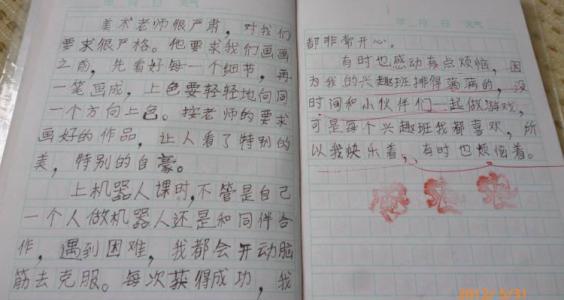 美术老师很严肃，对我们
要求很严格。他要求我们画画
之前，先看好每一个细节，再
一笔画成，上色要轻轻地向同
一个方向上色。按老师的要求
画好的作品，让人看了特别的
美，特别的自豪。
上机器人课时，不管是自己
一个人做机器人还是和同伴合
作，遇到困难，我都会开动脑
筋去克服。每次获得成功，我
都非常开心。
有时也感动有点烦恼，因
为我的兴趣班排得满满的，没
时间和小伙伴们一起做游戏，
可是每个兴趣班我都喜欢，所
以我快乐着，有时也烦恼着。